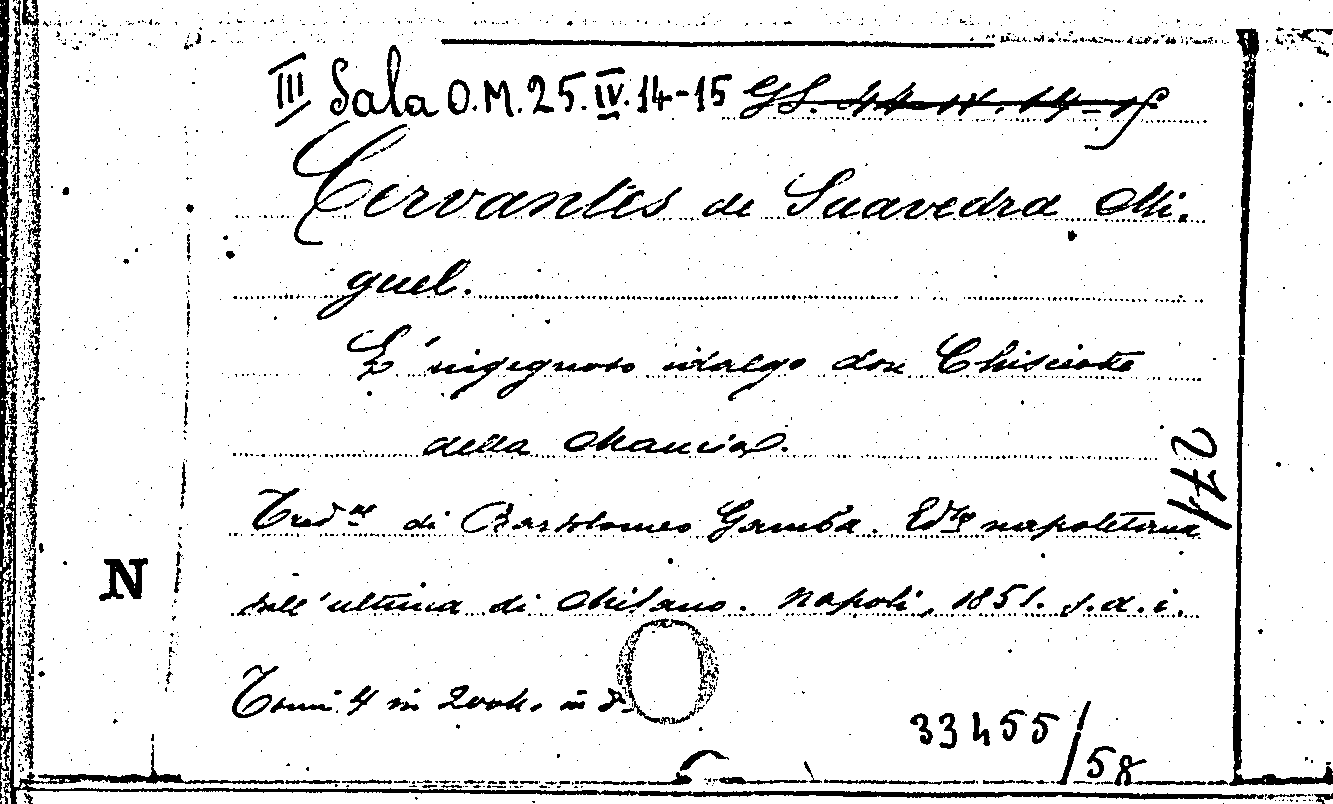 III Sala O.M.25.IV.14-15 GS. 44-IV. 14-15
Cervantes de Suavedra Mi.
guel.
L'ingegnoso idalgo don Chisciotte
della Mancia.
271
Trad.ne di Bartolomeo Gamba. Ed.ne napoletana
sull'ultima di Milano. Napoli, 1851. s.a.i.
N
Tomi 4 in 2 voll. in 8.
33455/58